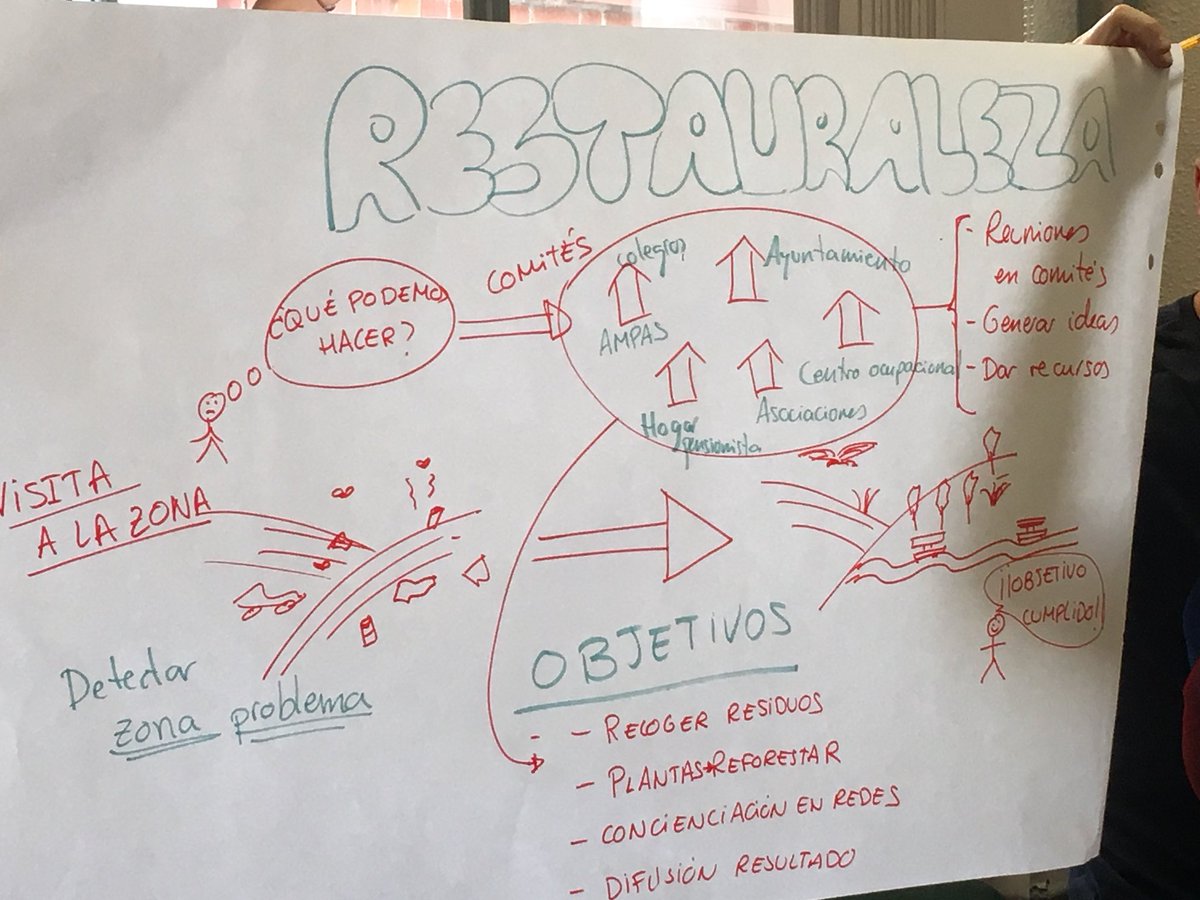 RESTAURALEZA
¿QUÉ PODEMOS
HACER?
COMITÉS
colegios
Ayuntamiento
AMPAS
Centro ocupacional
Hogar
pensionista
Asociaciones
- Reuniones
en comités
- Generar ideas
- Dar recursos
VISITA
A LA ZONA
Detectar
zona problema
¡¡OBJETIVO
CUMPLIDO!!
OBJETIVOS
- - RECOGER RESIDUOS
- PLANTAS→REFORESTAR
- CONCIENCIACIÓN EN REDES
- DIFUSIÓN RESULTADO